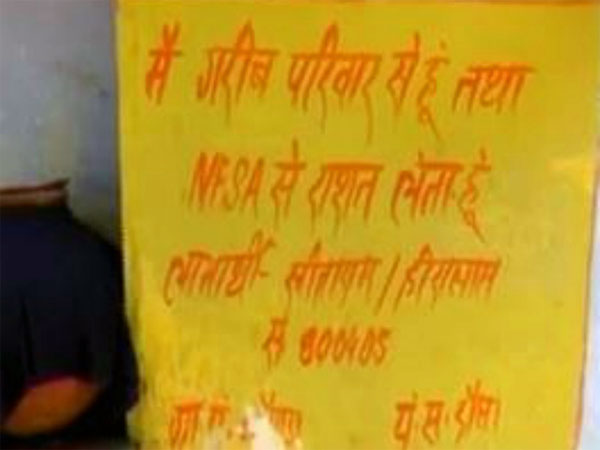 मै गरीब परिवार से हूं तथा
NFSA से राशन लेता हूं
लाभार्थी- सीताराम / हीरालाल
स 800405
ग्रा. पं.
पं. स. दौसा